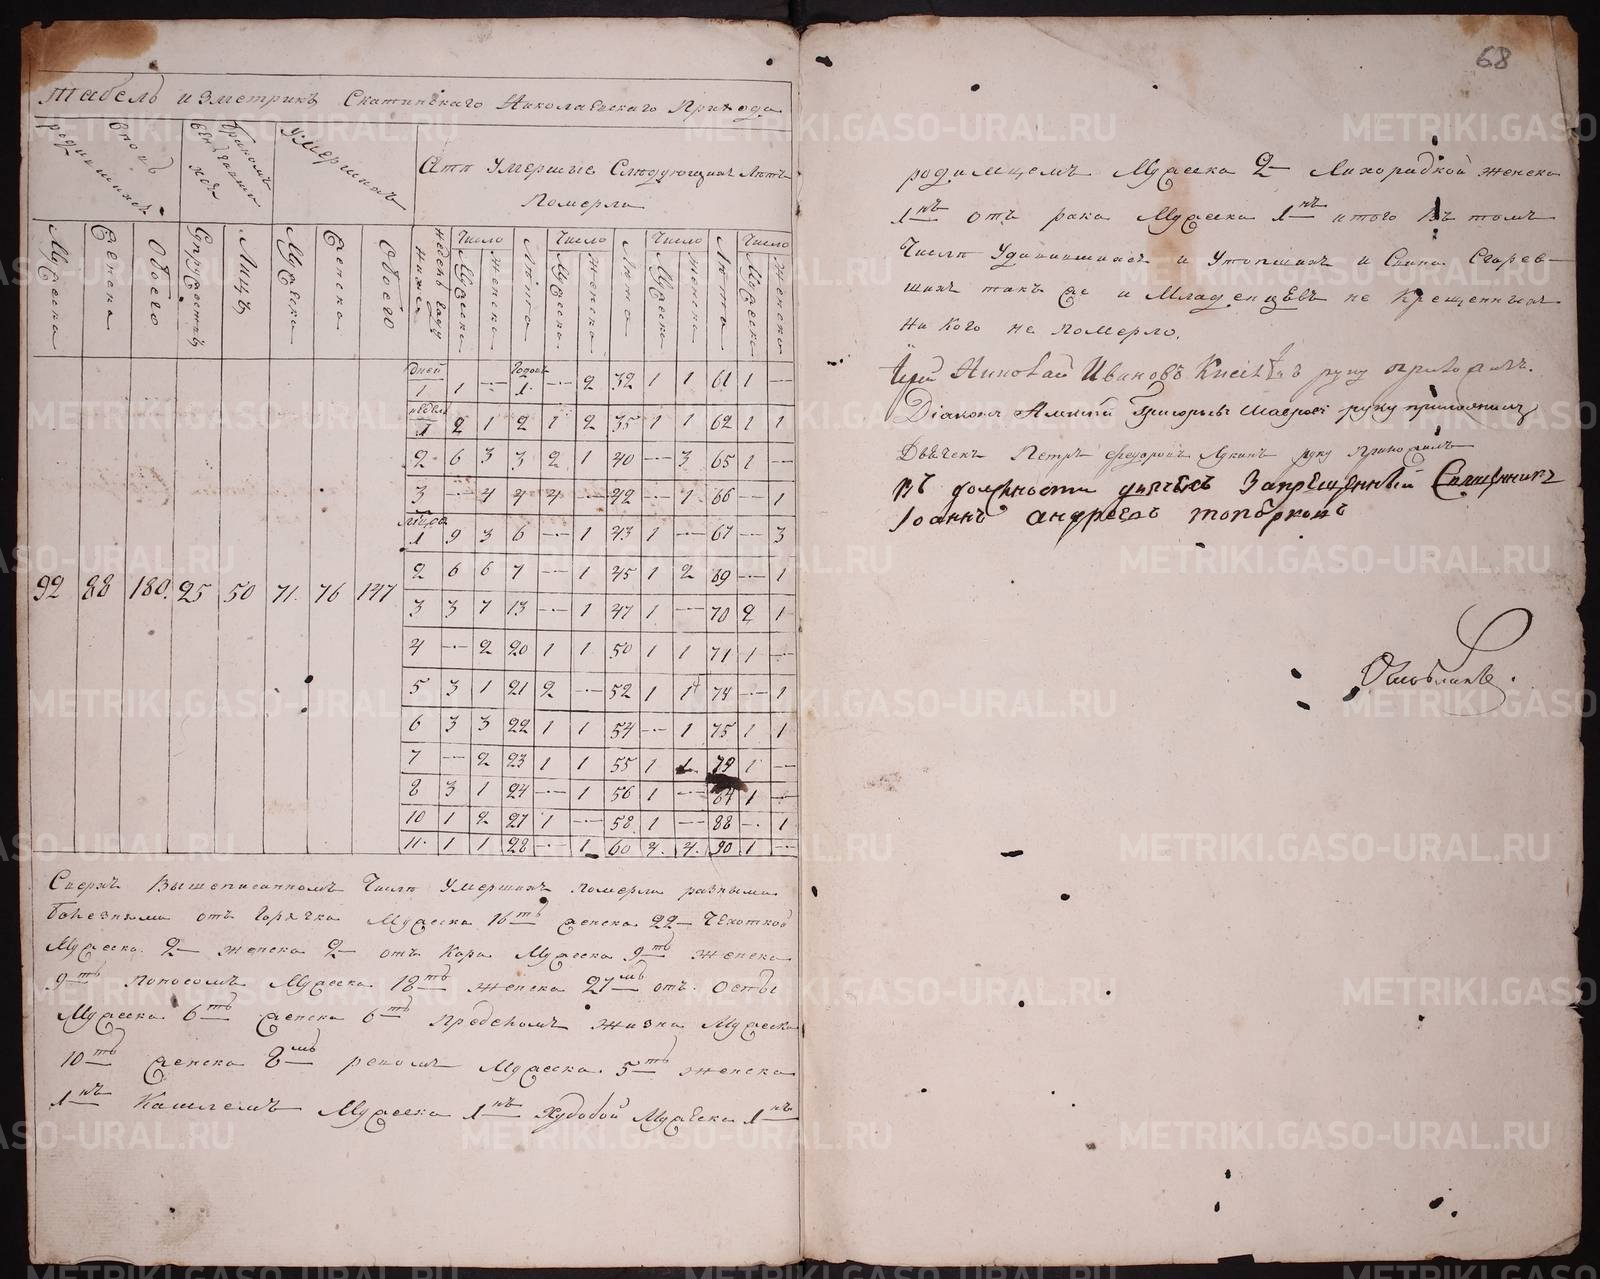 68
Табель изметрикъ Скатинскаго Николаевскаго Прихода
родившихся
Бракомъ
умершихъ
Ати Умершие Следующихъ Летъ
Померли
Мужеска Женска Обоего Супружествъ Лицъ Мужеска Женска Обоего
Число Число Число Число
Мужеска Женска Лета Мужеска Женска Лета Мужеска Женска Лета Мужеска Женска
92 88 180. 25 50 71. 76 147
Дней 1 1 — Годовъ 1. — 2 32 1 1 61 1 —
недель 1 2 1 2 1 2 35 1 1 62 1 1
2 6 3 3 2 1 40 — 3 65 1 —
3 — 4 4 4 — 42 — 1 66 — 1
1 9 3 6 — 1 43 1 — 67 — 3
2 6 6 7 — 1 45 1 2 69 — 1
3 3 7 13 — 1 47 1 — 70 2 1
4 — 2 20 1 1 50 1 1 71 1 —
5 3 1 21 2 — 52 1 1 74 — 1
6 3 3 22 1 1 54 — 1 75 1 1
7 — 2 23 1 1 55 1 1 79 1 —
8 3 1 24 — 1 56 1 — 84 1 —
10 1 2 27 1 — 58 1 — 88 — 1
11. 1 1 28 — 1 60 4. 4. 90 1 —
Сверхъ Вышеписанномъ Числе Умершихъ померли разными
болезньми отъ горячка Мужеска 16ть женска 22 чехоткой
Мужеска 2 женска 2 отъ Кори Мужеска 9ть женска
9ть поносомъ Мужеска 18ть женска 27мь отъ оспы
Мужеска 6ть женска 6ть пределомъ жизни Мужеска
10ть женска 8мь резомъ Мужеска 5ть женска
1нъ Кашлемъ Мужеска 1нъ худобой Мужеска 1нъ
родимцемъ Мужеска 2 Лихорадкой женска
1нъ отъ рака Мужеска 1нъ итого Въ томъ
Числе Удавившихъ и Утопшихъ и Сгорев-
шихъ такъ же и Младенцевъ не Крещенныхъ
ни кого не померло.
Иерей Николай Ивановъ руку приложилъ.
Дiаконъ Алексей Григорьевъ руку приложилъ
Дьячекъ Петръ Федоровъ Лукинъ руку приложилъ
Въ должности дьячекъ Запрещенный Священникъ
Iоаннъ андреевъ топорковъ
METRIKI.GASO-URAL.RU